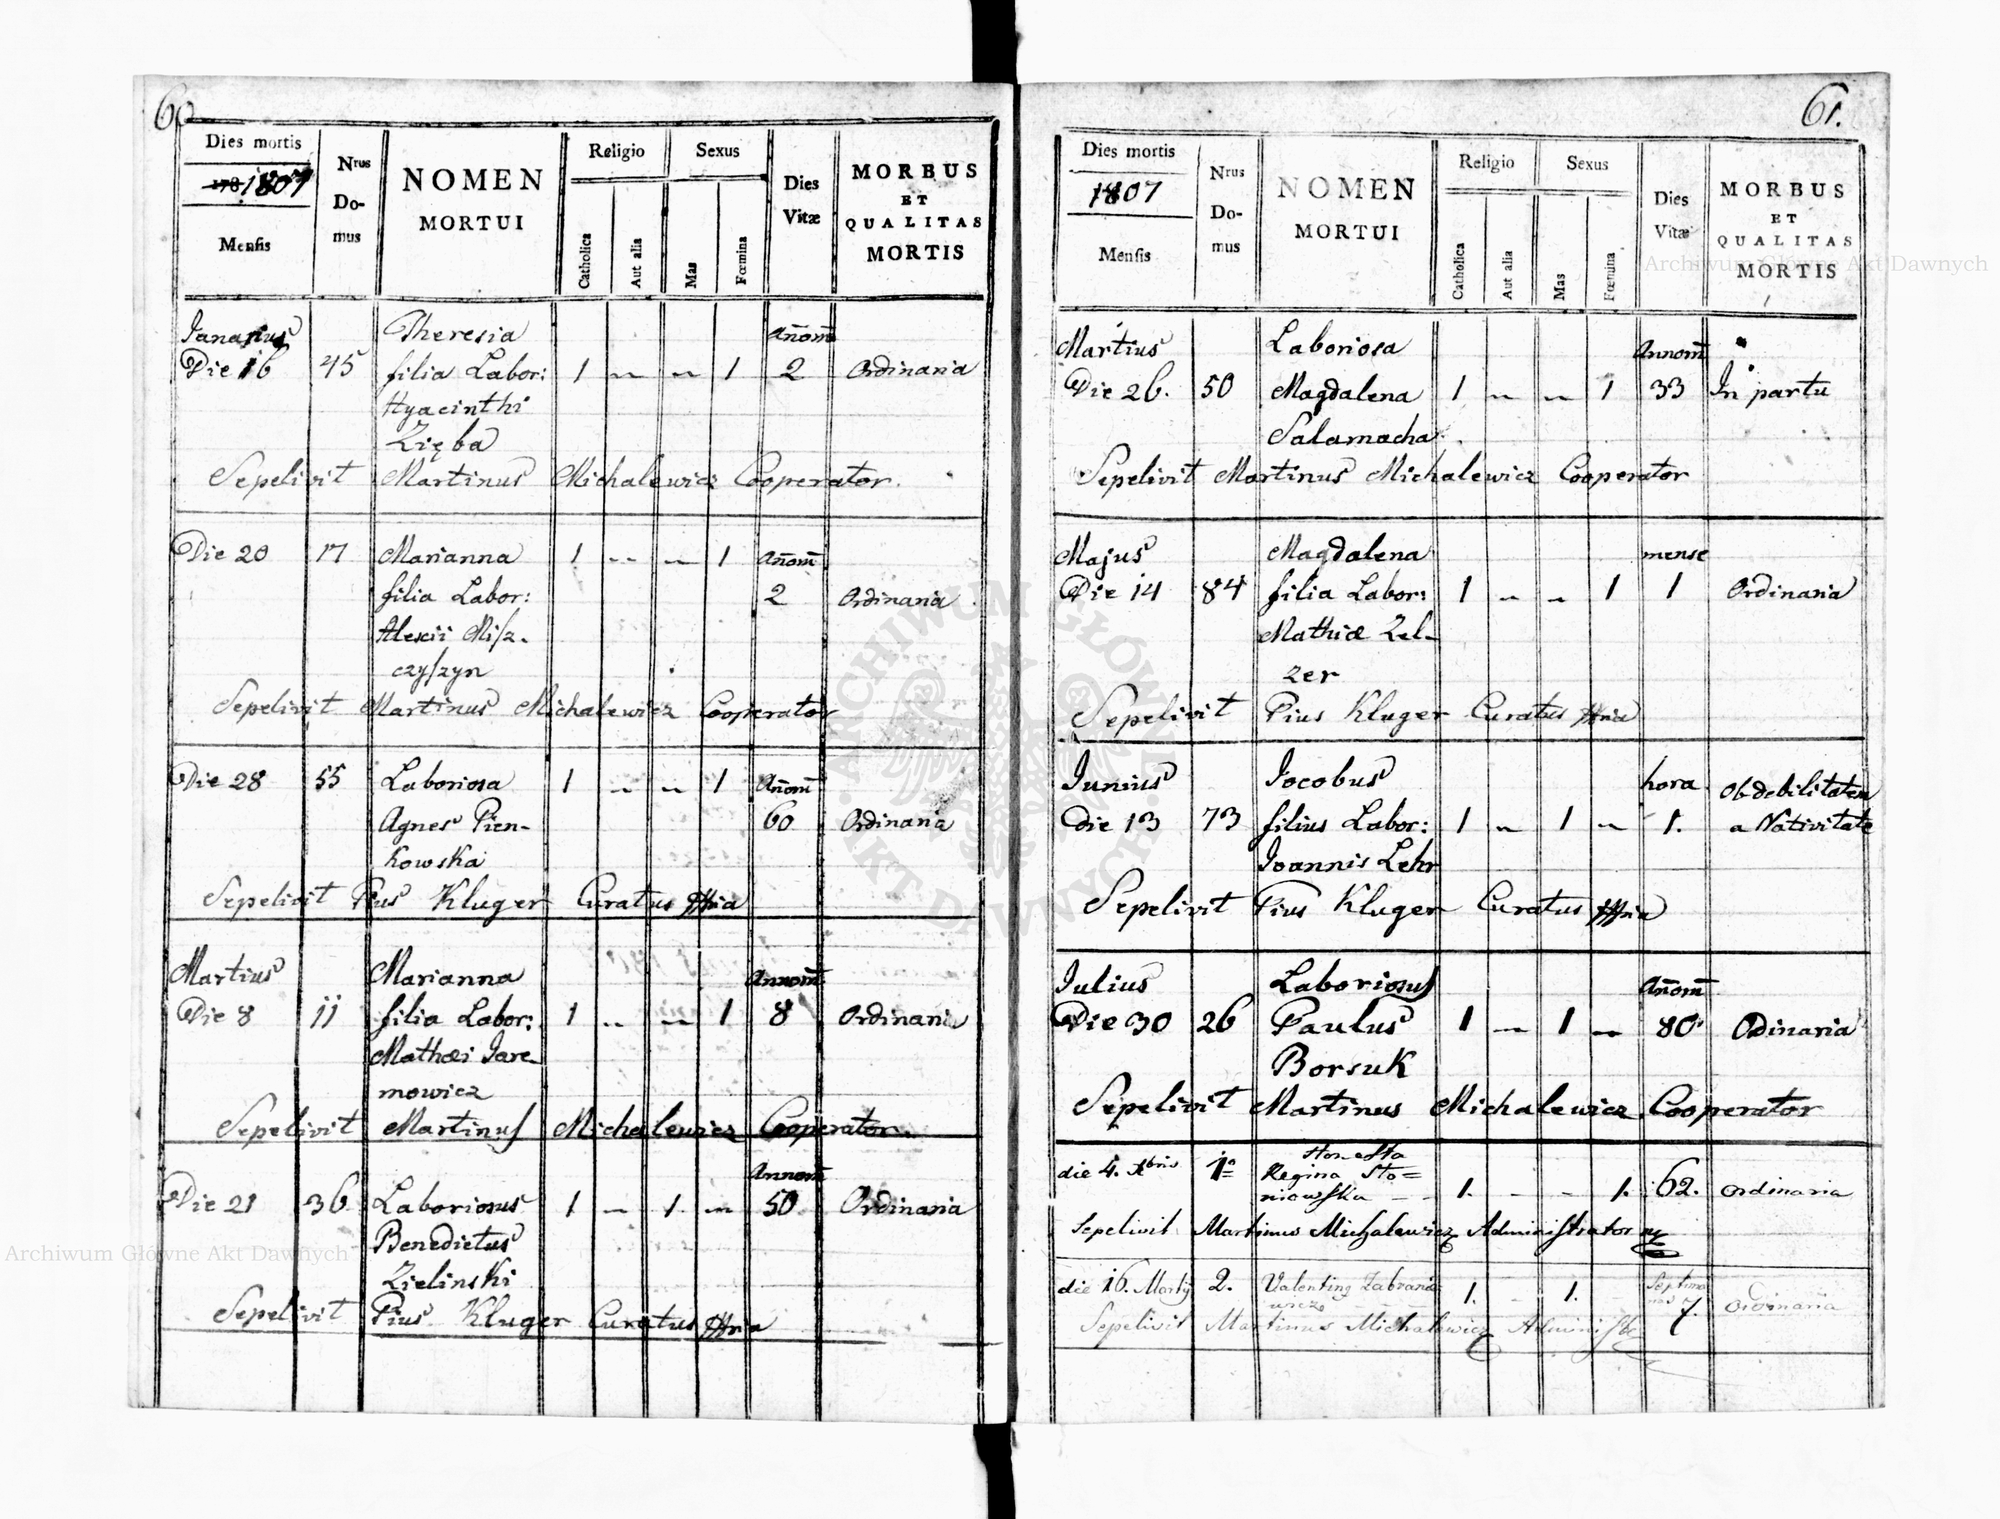 60
Dies mortis
178 1807
Mensis
Nrus Domus
NOMEN
MORTUI
Religio
Catholica
Aut alia
Sexus
Mas
Fœmina
Dies
Vitæ
MORBUS
ET
QUALITAS
MORTIS
Januarius Theresia Añom̄
Die 16 45 filia Labor: 1 ~ ~ 1 2 Ordinaria
Hyacinthi
Zięba
Sepelivit Martinus Michalewicz Cooperator.
Die 20 17 Marianna 1 ~ ~ 1 Añom̄
filia Labor: 2 Ordinaria
Alexii Misz-
czyszyn
Sepelivit Martinus Michalewicz Cooperator
Die 28 55 Laboriosa 1 ~ ~ 1 Añom̄
Agnes Pien- 60 Ordinaria
kowska
Sepelivit Pius Kluger Curatus
Martius Marianna Annom̄
Die 8 11 filia Labor: 1 ~ ~ 1 8 Ordinaria
Mathæi Jare-
mowicz
Sepelivit Martinus Michalewicz Cooperator.
Annom̄
Die 21 36 Laboriosus 1 ~ 1 ~ 50 Ordinaria
Benedictus
Zielinski
Sepelivit Pius Kluger Curatus
61.
Dies mortis
1807
Mensis
Nrus Domus
NOMEN
MORTUI
Religio
Catholica
Aut alia
Sexus
Mas
Fœmina
Dies
Vitæ
MORBUS
ET
QUALITAS
MORTIS
Martius Laboriosa Annom̄
Die 26. 50 Magdalena 1 ~ ~ 1 33 In partu
Salamacha
Sepelivit Martinus Michalewicz Cooperator
Majus Magdalena mense
Die 14 84 filia Labor: 1 ~ ~ 1 1 Ordinaria
Mathiæ Zel-
zer
Sepelivit Pius Kluger Curatus
Junius Jocobus hora Ob debilitatem
Die 13 73 filius Labor: 1 ~ 1 ~ 1. a Nativitate
Joannis Lehr
Sepelivit Pius Kluger Curatus
Julius Laboriosus Añom̄
Die 30 26 Paulus 1 ~ 1 ~ 80 Odinaria
Borsuk
Sepelivit Martinus Michalewicz Cooperator
Honesta
die 4. Xbris 1 Regina Sto=
niowska - - 1. - - 1. 62. ordinaria
Sepelivit Martinus Michalewicz Administrator
die 16. Martij 2. Valentinus 1. - 1. 7. ordinaria
Sepelivit Martinus Michalewicz
Archiwum Główne Akt Dawnych
Archiwum Główne Akt Dawnych
ARCHIWUM GŁÓWNE AKT DAWNYCH